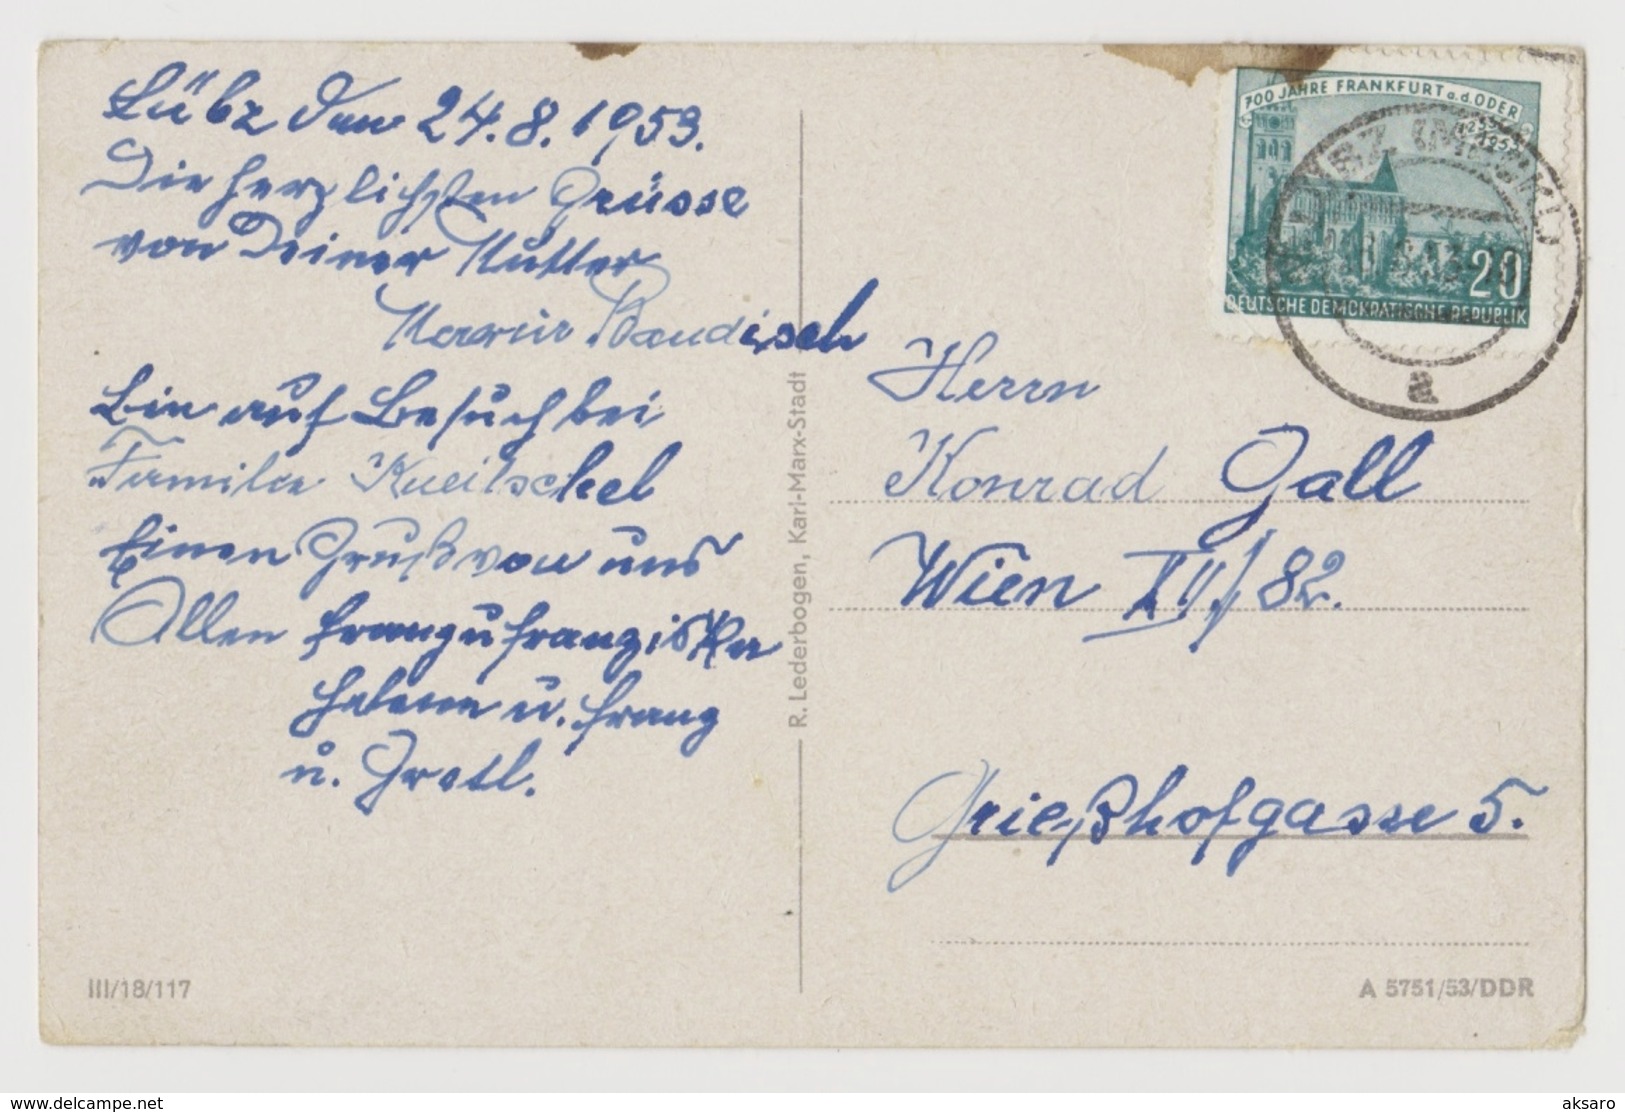 Lübz den 24.8.1953.
Die herzlichsten Grüsse
von Deiner Mutter
Baudisch
Bin auf Besuch bei
Familie Kneitschel
Einen Gruß von uns
Allen Franz u Franziska
Helene u. Franz
u. Gretl.
R. Lederbogen, Karl-Marx-Stadt
700 JAHRE FRANKFURT a.d.ODER
1253
1953
20
DEUTSCHE DEMOKRATISCHE REPUBLIK
a
Herrn
Konrad Gall
Wien XII./82.
Grießhofgasse 5.
III/18/117
A 5751/53/DDR
delcampe.net
aksaro